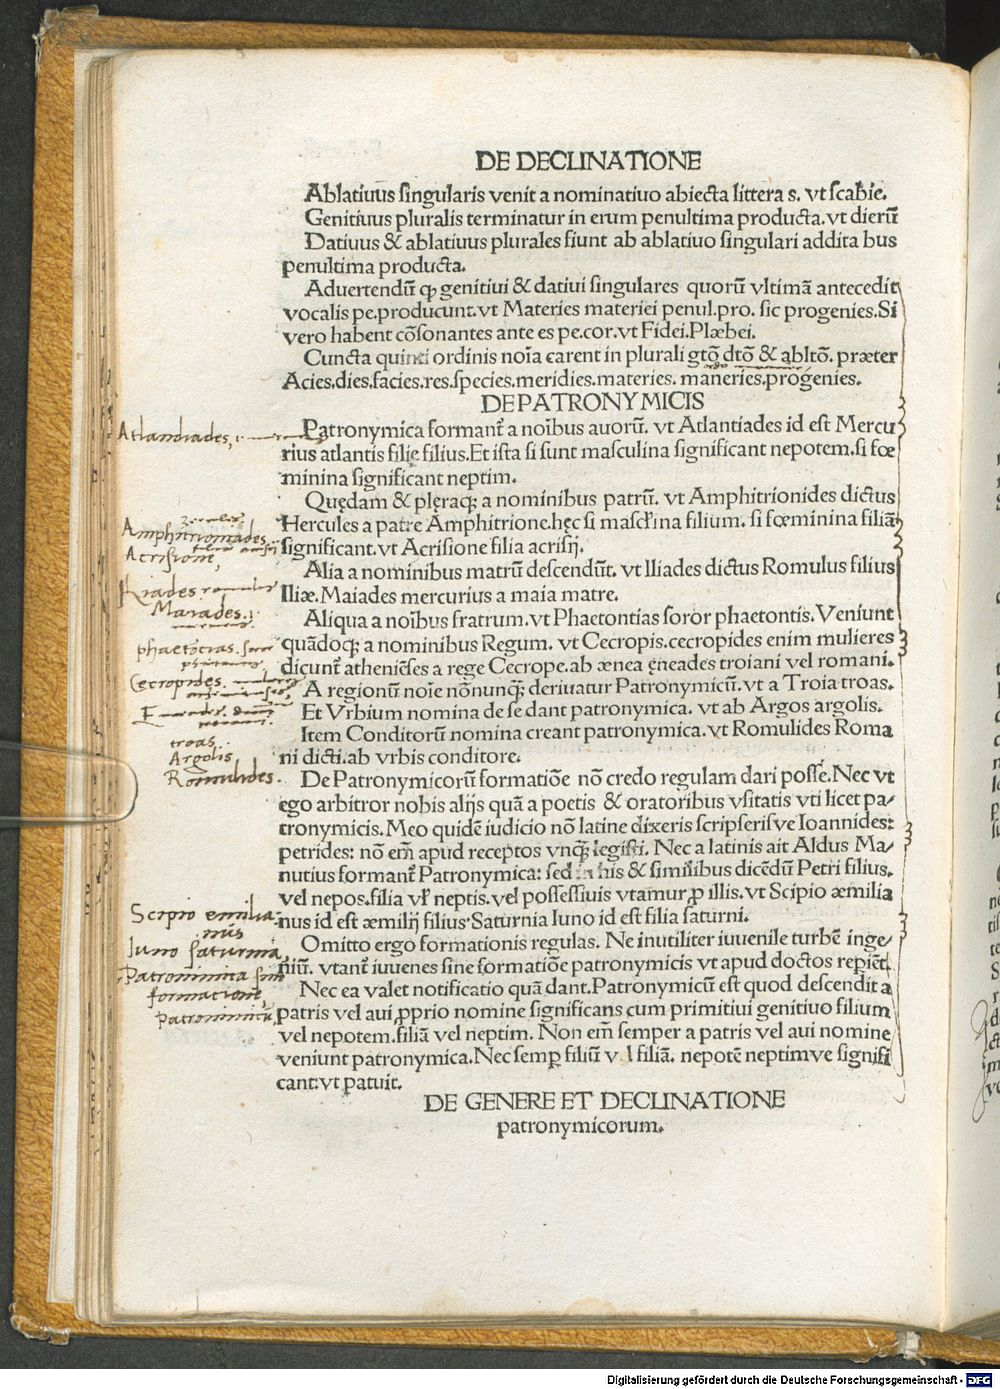 DE DECLINATIONE
Ablatiuus singularis venit a nominatiuo abiecta littera s. vt scabie.
Genitiuus pluralis terminatur in erum penultima producta. vt dierū
Datiuus & ablatiuus plurales fiunt ab ablatiuo singulari addita bus
penultima producta.
Aduertendū ꝙ genitiui & datiui singulares quorū vltimā antecedit
vocalis pe.producunt. vt Materies materiei penul.pro. sic progenies. Si
vero habent cōsonantes ante es pe.cor. vt Fidei. Plæbei.
Cuncta quinti ordinis noīa carent in plurali gtō dtō & abltō. præter
Acies.dies.facies.res.species.meridies.materies. maneries.progenies.
DE PATRONYMICIS
Atlandiades,
Patronymica formant̄ a noībus auorū. vt Atlantiades id est Mercu
rius atlantis filie filius. Et ista si sunt masculina significant nepotem. si fœ
minina significant neptim.
Quędam & plęraqꝫ a nominibus patrū. vt Amphitrionides dictus
Amphitrioniades
Hercules a patre Amphitrione. hęc si mascl'ina filium. si fœminina filiā
Acrisione,
significant. vt Acrisione filia acrisij.
Alia a nominibus matrū descendūt. vt Iliades dictus Romulus filius
Iliades romulus
Iliæ. Maiades mercurius a maia matre.
Maiades.
Aliqua a noībus fratrum. vt Phaetontias soror phaetontis. Veniunt
phaetōtias. soror
quādoqꝫ a nominibus Regum. vt Cecropis. cecropides enim mulieres
dicunt̄ atheniēses a rege Cecrope. ab ænea ęneades troiani vel romani.
Cecropides.
A regionū noīe nōnunqꝫ deriuatur Patronymicū. vt a Troia troas.
Et Vrbium nomina de se dant patronymica. vt ab Argos argolis.
Item Conditorū nomina creant patronymica. vt Romulides Roma
troas.
ni dicti. ab vrbis conditore.
Argolis
Romulides.
De Patronymicorū formatiōe nō credo regulam dari posse. Nec vt
ego arbitror nobis alijs quā a poetis & oratoribus vsitatis vti licet pa/
tronymicis. Meo quidē iudicio nō latine dixeris scripserisve Ioannides:
petrides: nō em̄ apud receptos vnqꝫ legisti. Nec a latinis ait Aldus Ma/
nutius formant̄ Patronymica: sed in his & similibus dicēdū Petri filius.
vel nepos. filia vl' neptis. vel possessiuis vtamur ꝑ illis. vt Scipio æmilia
Scipio emilia
nus
nus id est æmilij filius. Saturnia Iuno id est filia saturni.
Iuno saturnia,
Omitto ergo formationis regulas. Ne inutiliter iuuenile turbē inge/
niū. vtant̄ iuuenes sine formatiōe patronymicis vt apud doctos repiēt.
Patronimica sine
formacione,
Nec ea valet notificatio quā dant. Patronymicū est quod descendit a
patris vel aui ꝓprio nomine significans cum primitiui genitiuo filium
Patronimicū,
vel nepotem. filiā vel neptim. Non em̄ semper a patris vel aui nomine
veniunt patronymica. Nec semꝑ filiū vel filiā. nepotē neptimve signifi
cant: vt patuit.
DE GENERE ET DECLINATIONE
patronymicorum.
Digitalisierung gefördert durch die Deutsche Forschungsgemeinschaft - DFG